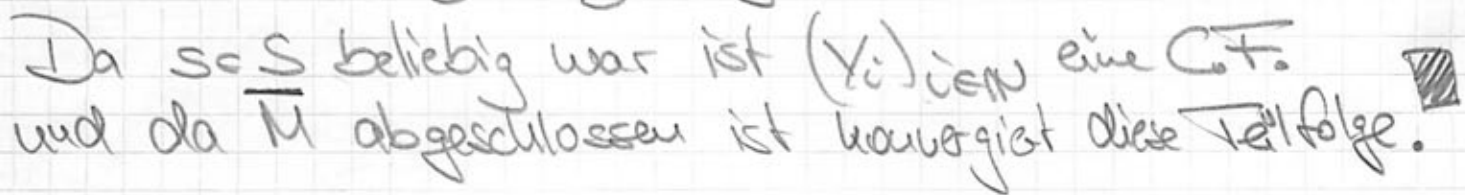 Da s∈S beliebig war ist (Yᵢ)ᵢ∈ℕ eine C.F.
und da M̅ abgeschlossen ist konvergiert diese Teilfolge.